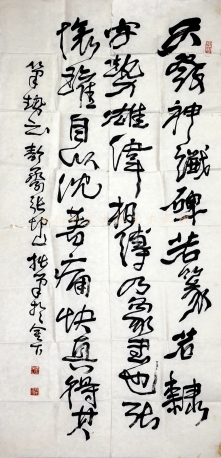 天發神讖碑若篆若隸
字勢雄偉相傳乃象書也張
懷瓘目以沈著痛快真得其
筆勢云 齋張 拙筆於